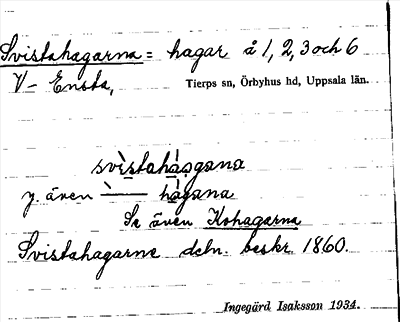 Svistahagarna = hagar å 1, 2, 3 och 6
V- Ensta,
Tierps sn, Örbyhus hd, Uppsala län.
svìstahá̱gana
y. även ——̀ hágana
Se även Kohagarna
Svistahagarne deln. beskr. 1860.
Ingegärd Isaksson 1934.